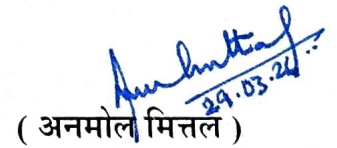 29.03.24
( अनमोल मित्तल )